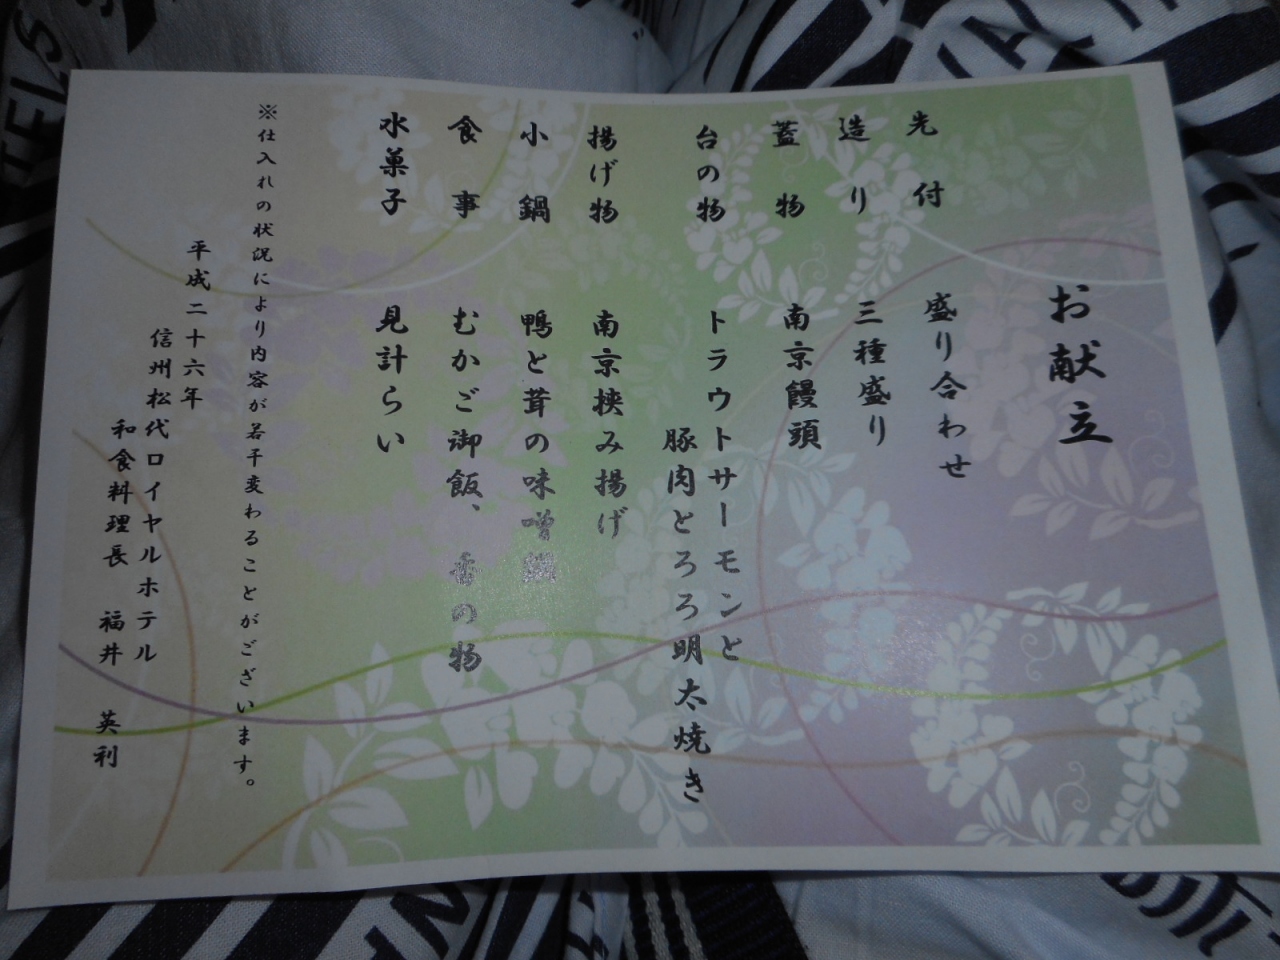 お献立
先付 盛り合わせ
造り 三種盛り
蓋物 南京饅頭
台の物 トラウトサーモンと
豚肉とろろ明太焼き
揚げ物 南京挟み揚げ
小鍋 鴨と茸の味噌鍋
食事 むかご御飯、香の物
水菓子 見計らい
※仕入れの状況により内容が若干変わることがございます。
平成二十六年
信州松代ロイヤルホテル
和食料理長 福井 英利